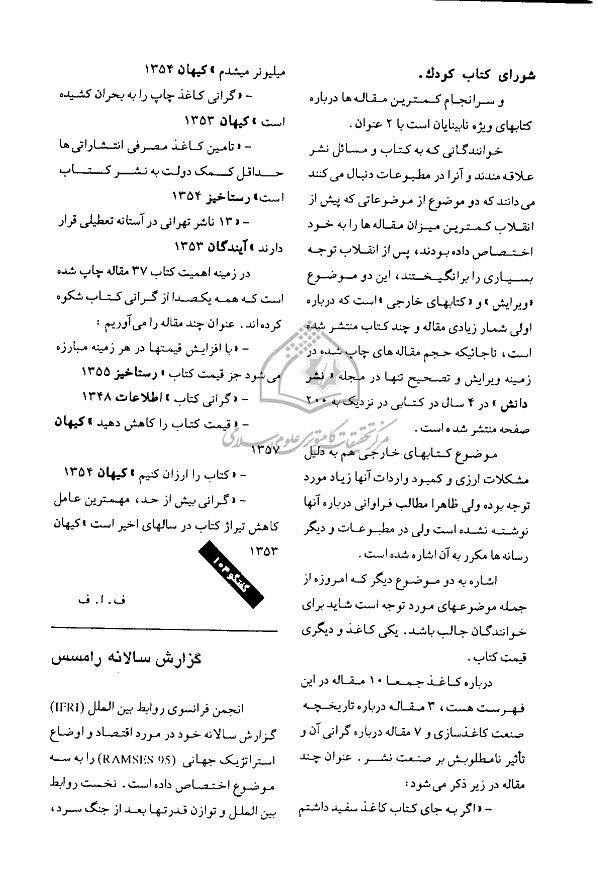 شورای کتاب کودك.
و سرانجام کمترین مقاله ها درباره
کتابهای ویژه نابینایان است با ۲ عنوان.
خوانندگانی که به کتاب و مسائل نشر
علاقه مندند و آنرا در مطبوعات دنبال می کنند
می دانند که دو موضوع از موضوعاتی که پیش از
انقلاب کمترین میزان مقاله ها را به خود
اختصاص داده بودند، پس از انقلاب توجه
بسیاری را برانگیختند، این دو موضوع
«ویرایش» و «کتابهای خارجی» است که درباره
اولی شمار زیادی مقاله و چند کتاب منتشر شده
است، تاجائیکه حجم مقاله های چاپ شده در
زمینه ویرایش و تصحیح تنها در مجله «نشر
دانش» در ۴ سال در کتابی در نزدیک به ۲۰۰
صفحه منتشر شده است.
موضوع کتابهای خارجی هم به دلیل
مشکلات ارزی و کمبود واردات آنها زیاد مورد
توجه بوده ولی ظاهرا مطالب فراوانی درباره آنها
نوشته نشده است ولی در مطبوعات و دیگر
رسانه ها مکرر به آن اشاره شده است.
اشاره به دو موضوع دیگر که امروزه از
جمله موضوعهای مورد توجه است شاید برای
خوانندگان جالب باشد. یکی کاغذ و دیگری
قیمت کتاب.
درباره کاغذ جمعا ۱۰ مقاله در این
فهرست هست، ۳ مقاله درباره تاریخچه
صنعت کاغذسازی و ۷ مقاله درباره گرانی آن و
تأثیر نامطلوبش بر صنعت نشر. عنوان چند
مقاله در زیر ذکر می شود:
- «اگر به جای کتاب کاغذ سفید داشتم
میلیونر میشدم» کیهان ۱۳۵۴
- «گرانی کاغذ چاپ را به بحران کشیده
است» کیهان ۱۳۵۳
- «تامین کاغذ مصرفی انتشاراتی ها
حداقل کمک دولت به نشر کتاب
است» رستاخیز ۱۳۵۴
- «۱۳ ناشر تهرانی در آستانه تعطیلی قرار
دارند» آیندگان ۱۳۵۳
در زمینه اهمیت کتاب ۳۷ مقاله چاپ شده
است که همه یکصدا از گرانی کتاب شکوه
کرده اند. عنوان چند مقاله را می آوریم:
- «با افزایش قیمتها در هر زمینه مبارزه
می شود جز قیمت کتاب» رستاخیز ۱۳۵۵
- «گرانی کتاب» اطلاعات ۱۳۴۸
- «قیمت کتاب را کاهش دهید» کیهان
۱۳۵۷
- «کتاب را ارزان کنیم» کیهان ۱۳۵۴
- «گرانی بیش از حد، مهمترین عامل
کاهش تیراژ کتاب در سالهای اخیر است» کیهان
۱۳۵۳
گفتگو ۱۰۳
ف. ا. ف
گزارش سالانه رامسس
انجمن فرانسوی روابط بین الملل (IFRI)
گزارش سالانه خود در مورد اقتصاد و اوضاع
استراتژیک جهانی (RAMSES 95) را به سه
موضوع اختصاص داده است. نخست روابط
بین الملل و توازن قدرتها بعد از جنگ سرد،
مرکز تحقیقات کامپیوتری علوم اسلامی